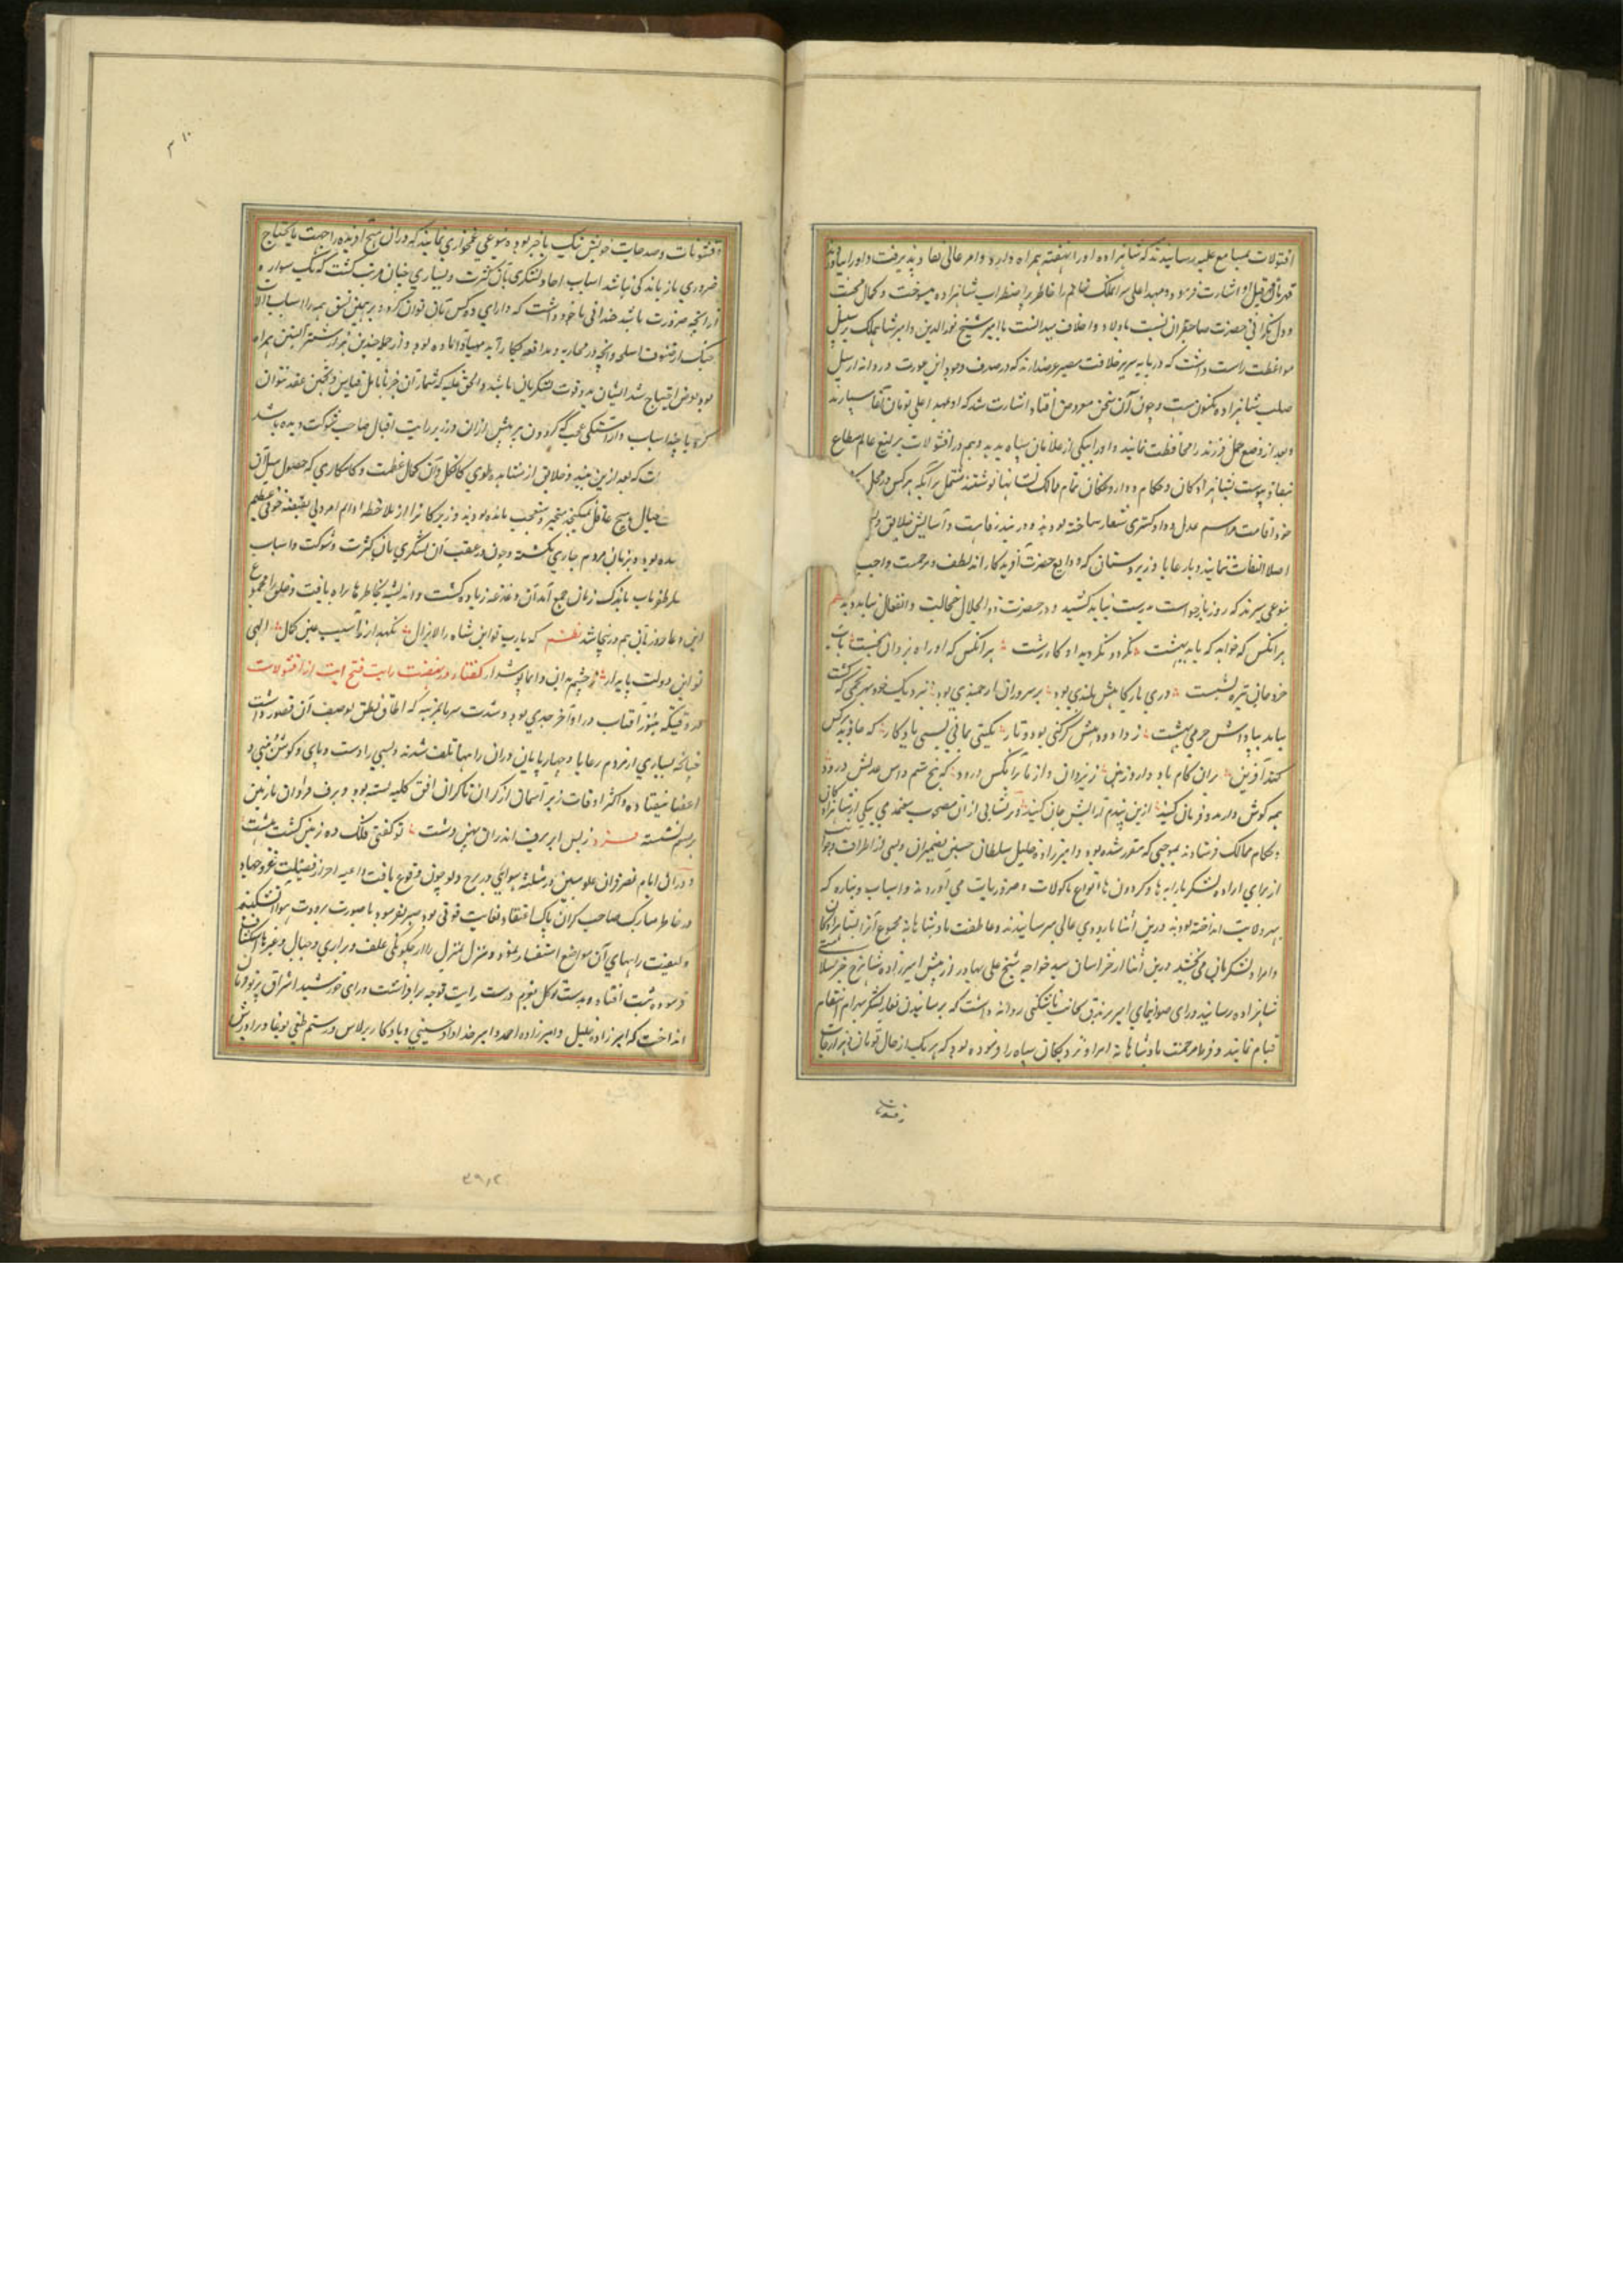 اقتولات بمسامع علیه رسانیدند که شاهزاده او را نهفته همراه دارد و امر عالی نفاذ پذیرفت و او را بیاورند
اشارت فرمود و مهد اعلی سرای ملک خانم را خاطر بر اضطراب شاهزاده میسوخت و کمال محبت
و دل نکرانی حضرت صاحبقران نسبت باولاد و احفاد میدانست با امیر شیخ نورالدین و امیر شاهملک بر سبیل
مواعظت راست داشت که در پایه سریر خلافت مصیر عرضه دارند که در صدف وجود این عورت دردانه از سیل
صلب شاهزاده مکنونست و چون آن سخن معروض افتاد اشارت شد که او بمهد اعلی تومان آغا سپارند
و بعد از وضع حمل فرزند را محافظت نمایند و او را بیکی از غلامان سیاه بدهد و هم در اقتولات یرلیغ عالم مطاع
نفاذ پیوست بشاهزادکان و حکام و داروغکان تمام ممالک نشانها نوشتند مشتمل بر آنکه هر کس در محل
خود اقامت مراسم عدل و داد کستری شعار ساخته بودند و در بند رفاهیت و آسایش خلایق
اصلا التفات ننمایند و با رعایا و زیردستان که ودایع حضرت آفریدکار اند لطف و مرحمت واجب
بنوعی سپرند که روز بازخواست ندامت نباید کشید و در حضرت ذوالجلال خجالت و انفعال نباید دید نظم
هر آنکس که خواهد که یابد بهشت نکردد بکردد بد او کار زشت هر آنکس که او راه یزدان بجست باب
خرد جانی تیره بشست دری بارکاهش بلندی بود بر سروران ارجمندی بود به نیک خود هر تخمی که کشت
بیاید بپاداش خرمی بهشت ز داد و دهش کر کنی پود و تار بکیتی بمانی بسی یادکار که جاوید هر کس
کند آفرین بران کام باد و داد و زمین ز یزدان و از ما بر آنکس درود که بیخ ستم داس عدلش درود
همه کوش دارید و فرمان کنید ازین پندم آرایش جان کنید و هر نشانی از آن مصحوب معتمدی بیکی از شاهزادکان
و حکام ممالک فرستادند بموجبی که مقرر شده بود و امیرزاده خلیل سلطان حسین بضمیران و بسی از اطراف و جوانب
از برای امراء لشکر بارابه ها و کردون ها انواع ماکولات و ضروریات می آوردند و اسباب و نباره که
هر ولایت انداخته بودند درین اثنا باردوی عالی میرسانیدند و عاطفت پادشاهانه مجموع آنرا بشاهزادکان
و امراء لشکریان می بخشید درین اثنا از خراسان سید خواجه شیخ علی بهادر از پیش امیرزاده شاهرخ خبر سلامتی
شاهزاده رسانید و رای صوابنمای امیر برندق بجانب تاشکنت روانه داشت که برسانیدن تغار لشکر بهرام انتظام
قیام نمایند و فرط مرحمت پادشاهانه امراء و نزدیکان سپاه را فرموده بود که هر یک از حال تومان و هزارجات
ز قشونات
۳۱۰
و قشونات و صدجات خویش نیک باخبر بوده بنوعی غمخواری نمایند که در آن هیچ آفریده را جهت مایحتاج
ضروری باز ماندکی نباشد اسباب احاد لشکری بآن کثرت و بسیاری چنان مرتب کشت که یک سوار
از آنچه ضرورت باشد چندانی با خود داشت که دارای ده کس بآن توان کرد و بر همین نسق همه را اسباب و آلات
جنک از فنون اسلحه و آنچه در محاربه و مدافعه بکار آید مهیا و آماده بود و از جمله چندین هزار شتر آبستن همراه
بود بوقت احتیاج شیر ایشان مدد قوت لشکریان باشد والحق غلبه که شمار آن جز بتامل قیاس و تخمین عقد نتوان
کرد با چندان اسباب و آراستکی عجب که کردون پیر پیش از آن در زیر رایت اقبال صاحب شوکت دیده باشد
ت که بعد ازین جنبه و خلایق از مشاهده طوی کانکل و آن کمال عظمت و کامکاری که حصول مثل آن
خیال هیچ عاقل نمیکنجد متحیر و متعجب مانده بودند و زیرکان را از ملاحظه اذا تم امر دنی نقصه خوفی عظیم
شده بود و بر زبان مردم جاری کشته و چون در عقب آن لشکری بآن کثرت و شوکت و اسباب
باندک زمان جمع آمد آن دغدغه زیاده کشت و اندیشه بخاطرها راه یافت و خلق را مجموع
این دعا ورد زبانی هم در جاشد نظم که یارب تو این شاه را لایزال نکهدار از آسیب عین کمال الهی
تو این دولت پایدار ز چشم بد این و اما پوشدار کفتار در نهضت رایت فتح آیت از اقتولات
در وقتیکه هنوز آفتاب در اواخر جدی بود و شدت سرما بمرتبه که اطاقا نطق بوصف آن قصور داشت
چنانچه بسیاری از مردم رعایا و چهارپایان در آن راهها تلف شدند و بسی را دست و پای و کوش و بینی و
اعضا بیفتاده و اکثر اوقات زیر آسمان از کران تا کران افق کلیه بسته بود و برف فراوان بر زمین
برهم نشسته فرد ز بس ابر برف اندران پهن دشت تو کفتی فلک ده زمین کشت هشت
و در آن ایام قصر قران علویین در مثلثه هوائی در برج دلو چون وقوع یافت داعیه احراز فضیلت غزو جهاد
در خاطر مبارک صاحب قران پاک اعتقاد بغایت قوی بود صبر نفرمود تا صورت برودت هوا انکسار
و کیفیت راههای آن مواضع استفسار نمود و منزل بمنزل را از چکونکی علف و براری و جبال و غیرها استکشاف
فرموده ثبت افتاد و بدست توکل بعزم درست رایت توجه برافراشت و رای خورشید اشراق پرتو بدان
انداخت که امیرزاده خلیل و امیرزاده احمد و امیر خداداد حسینی و یادکار برلاس و رستم طغی بوغا و برادرش
۳۹۱۲